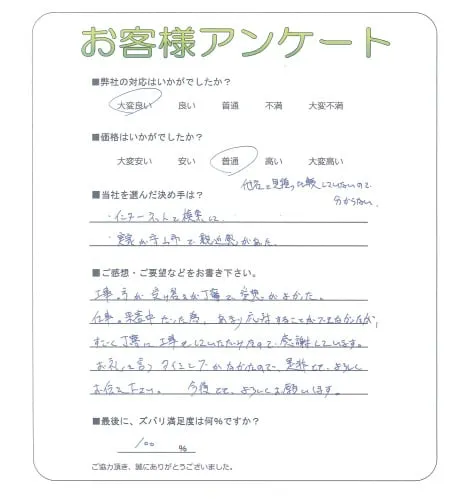 お客様アンケート
■弊社の対応はいかがでしたか?
大変良い 良い 普通 不満 大変不満
■価格はいかがでしたか?
大変安い 安い 普通 高い 大変高い
他社と見積り比較していないので
分からない。
■当社を選んだ決め手は?
・インターネットで検索して
・実家が 市で親近感があった。
■ご感想・ご要望などをお書き下さい。
工事の方が 丁寧で 感じがよかった。
仕事の 中だった為、あまり することができなかったが、
すごく丁寧に工事をしていただけたので感謝しています。
お礼を言うタイミングがなかったので、是非 よろしく
お伝え下さい。 今後 よろしくお願いします。
■最後に、ズバリ満足度は何%ですか?
100 %
ご協力頂き、誠にありがとうございました。